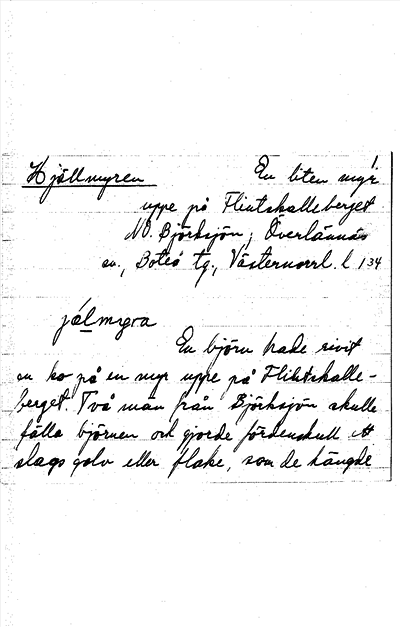 Hjällmyren En liten myr
uppe på Flintskalleberget
NO. Björksjön, Överlännäs
sn., Boteå tg., Västernorrl. l 134
jálmyra
En björn hade rivit
en ko på en myr uppe på Flintskalle-
berget. Två män från Björksjön skulle
fälla björnen och gjorde fördenskull ett
slags golv eller flake, som de hängde